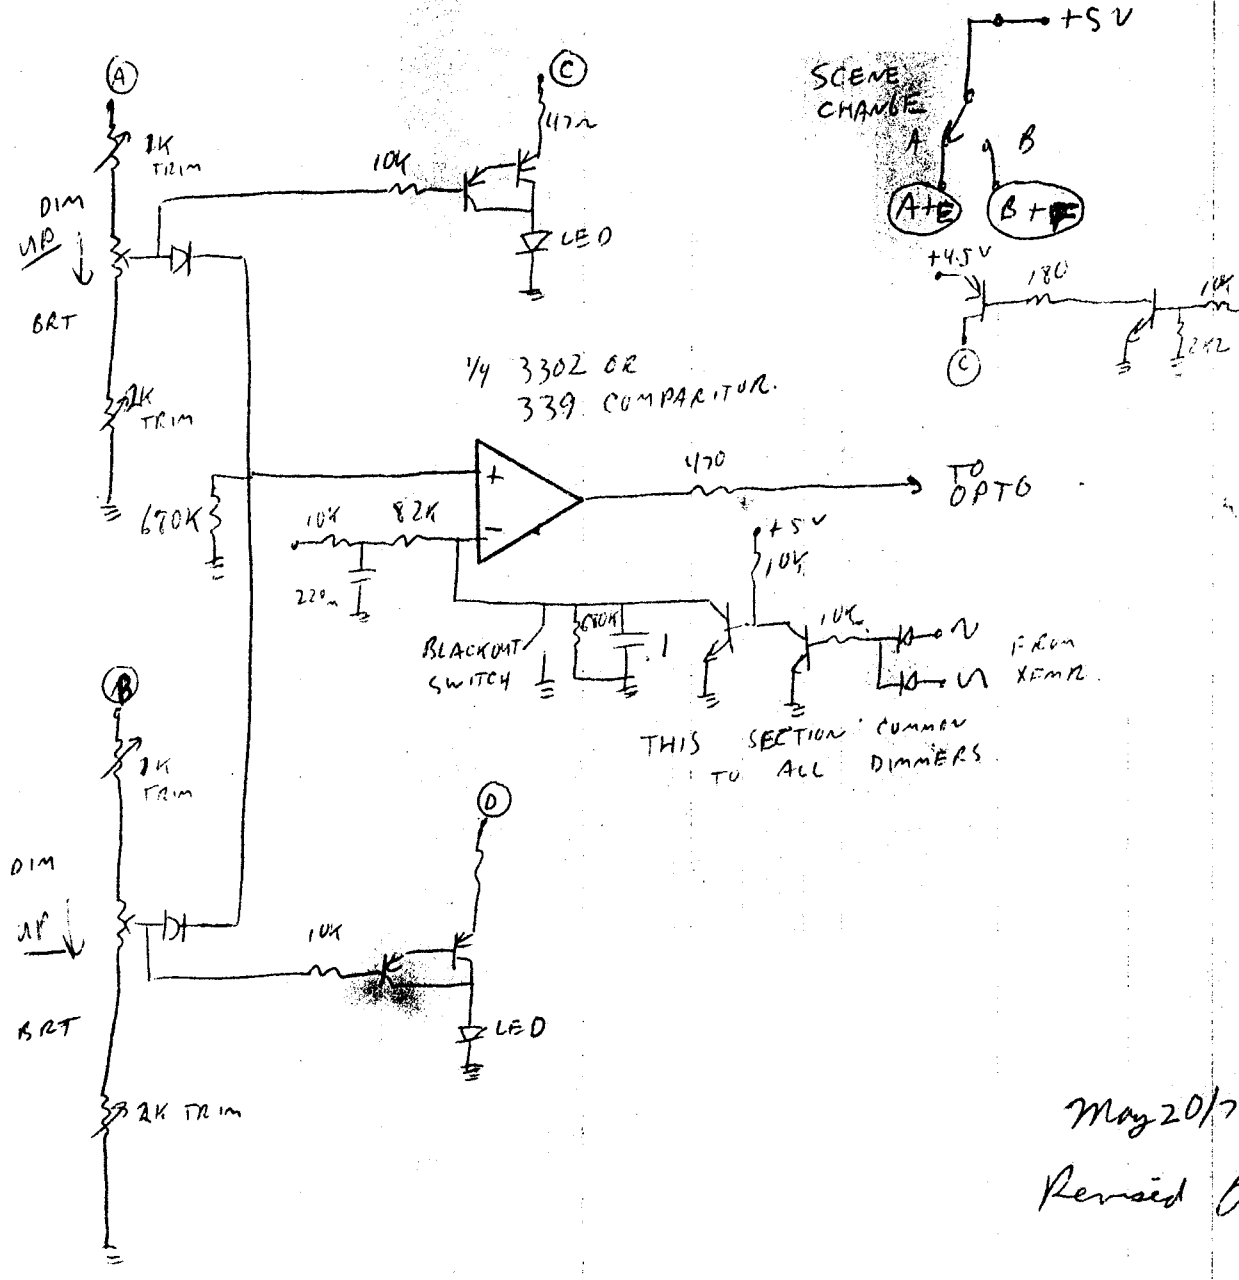 A
1K
TRIM
DIM
UP
BRT
2K
TRIM
C
47Ω
10K
LED
+5V
SCENE
CHANGE
A
B
A+E
B+F
+4.5V
180
10K
2K2
C
1/4 3302 OR
339 COMPARITOR.
470
TO
OPTO
680K
10K
82K
+
-
220n
+5V
10K
BLACKOUT
SWITCH
680K
.1
10K
FROM
XFMR.
THIS SECTION COMMON
TO ALL DIMMERS.
B
1K
TRIM
DIM
UP
BRT
2K TRIM
D
10K
LED
May 20/7
Revised